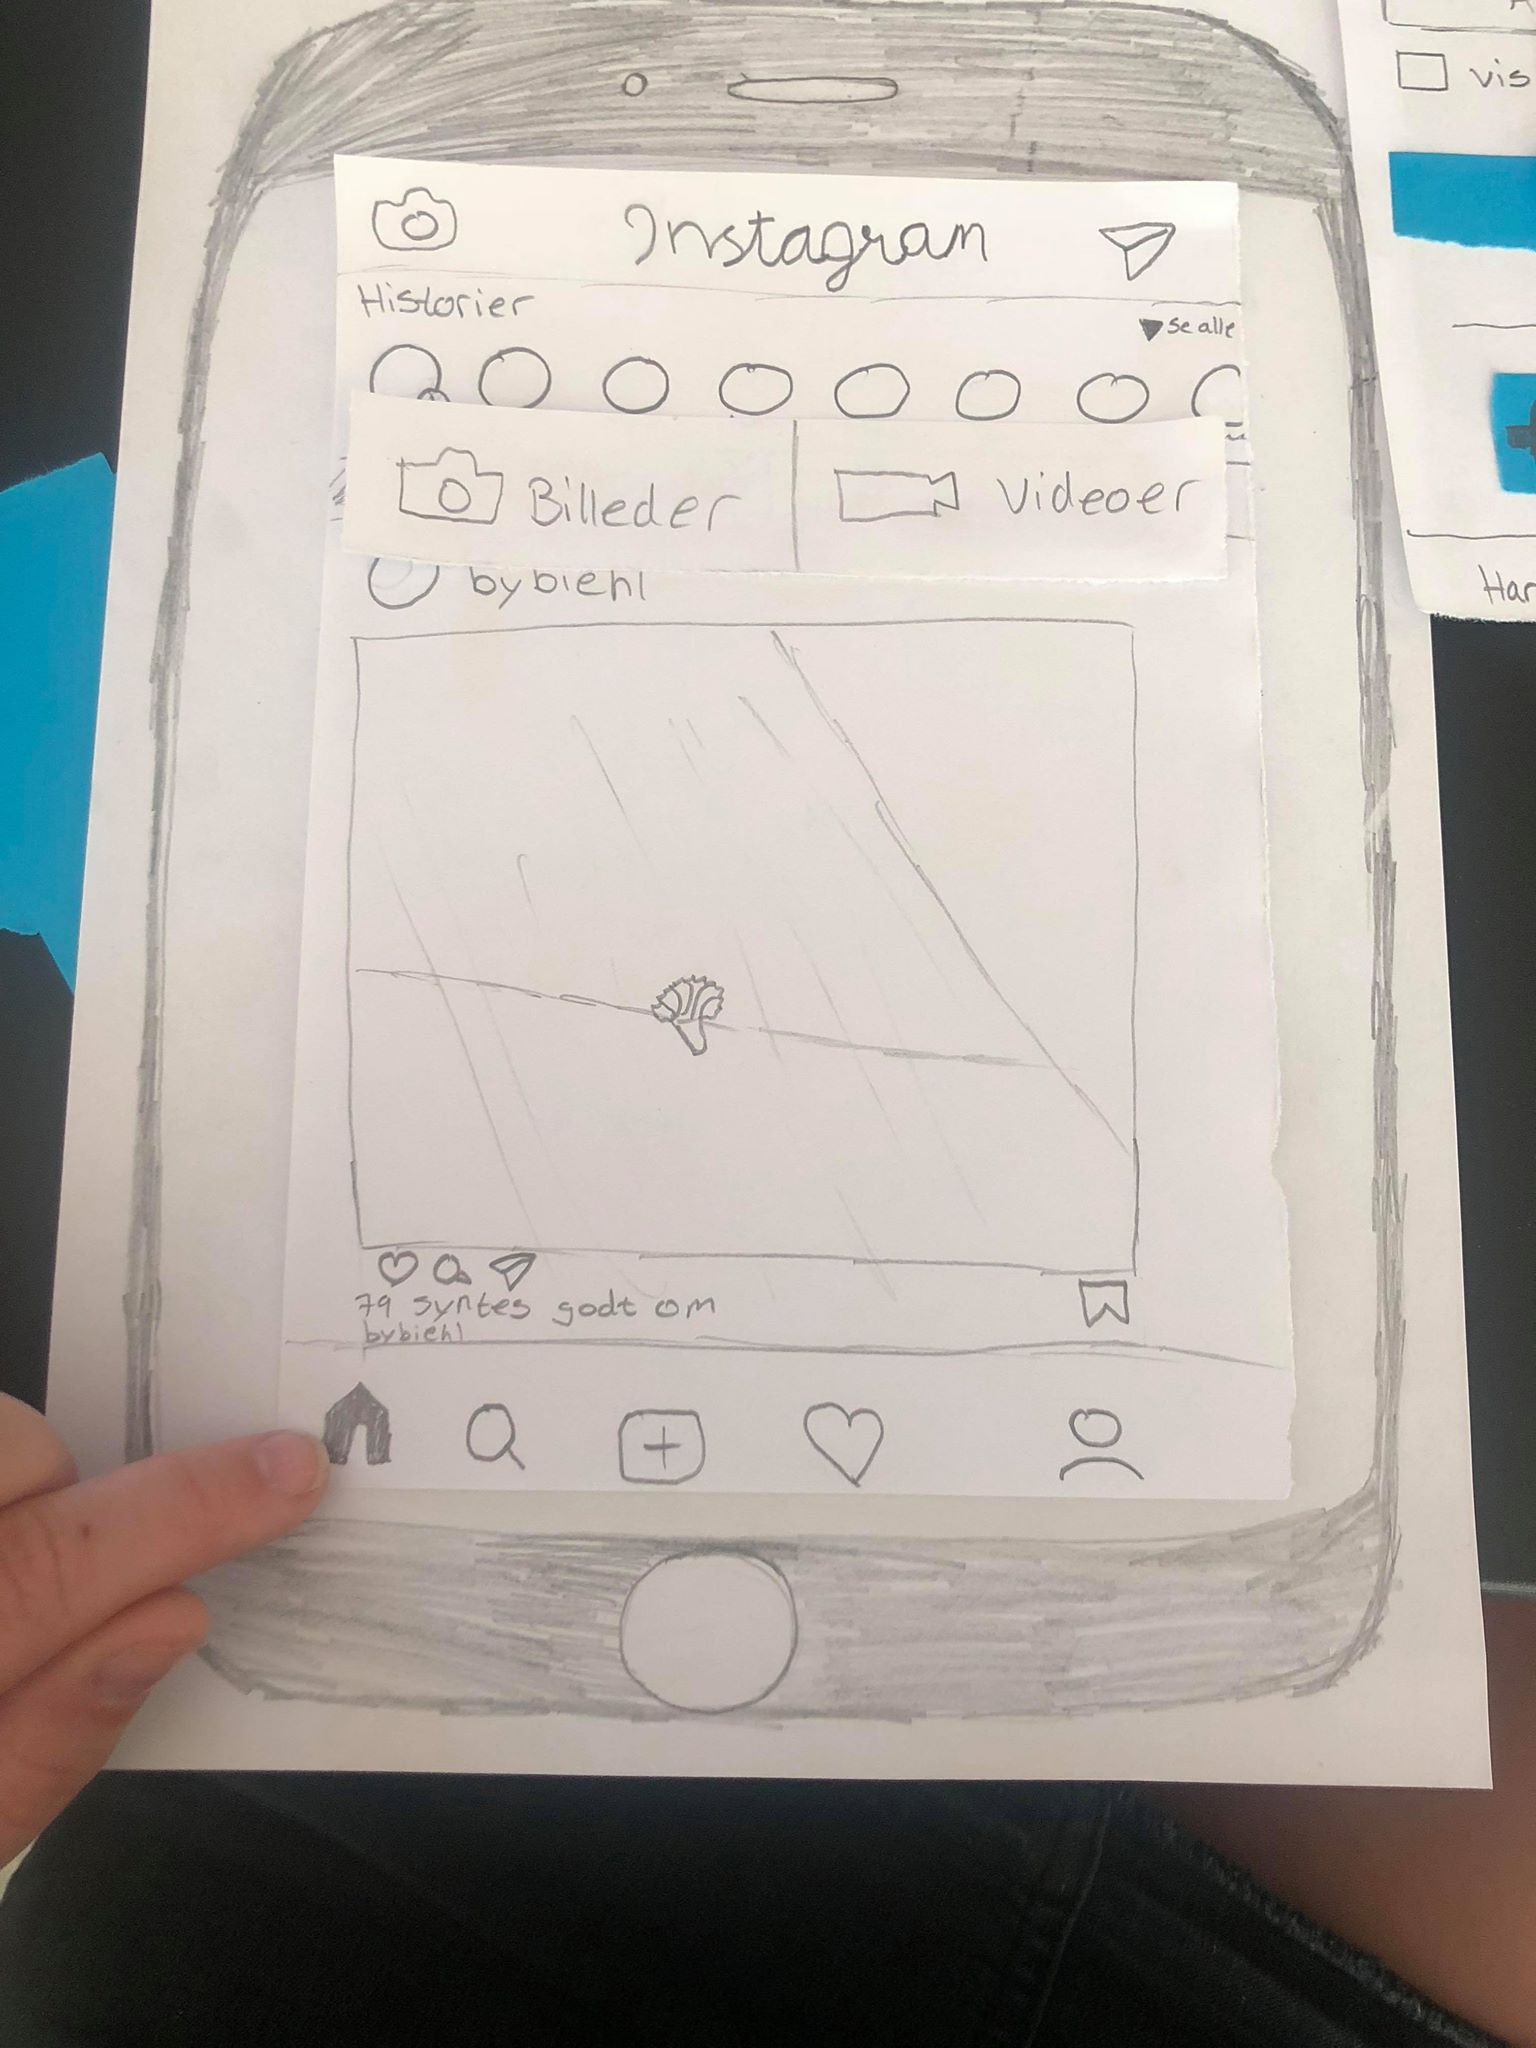 Instagram
Historier
se alle
Billeder
Videoer
bybiehl
79 syntes godt om
bybiehl
vis
Har